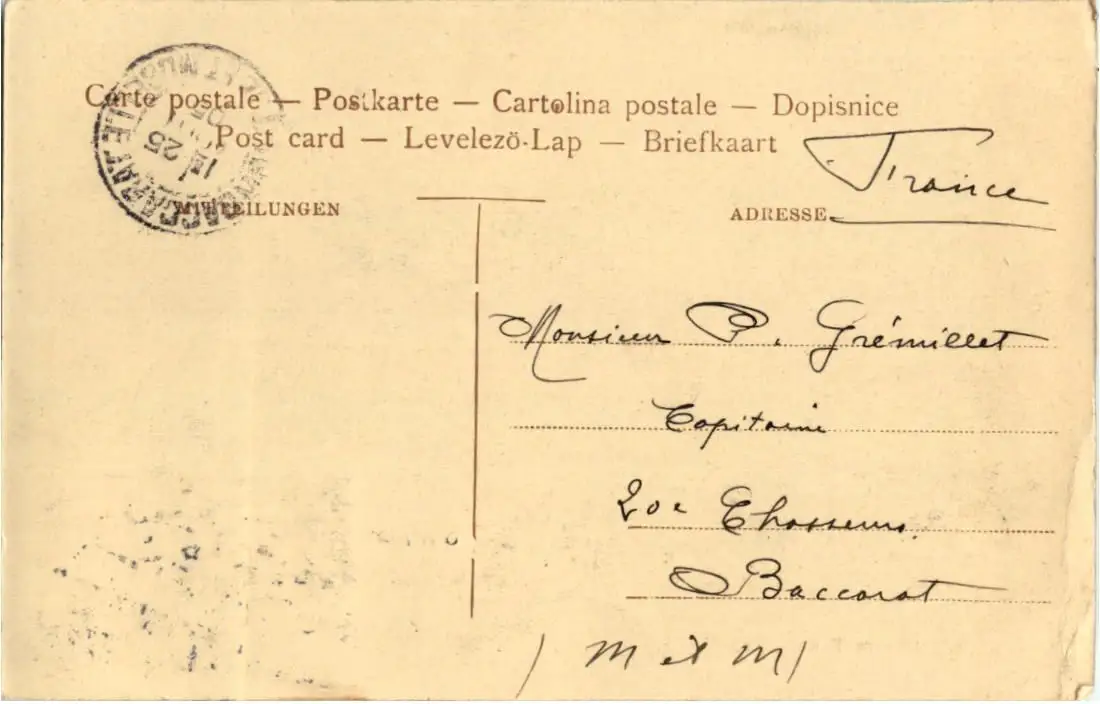 Carte postale — Postkarte — Cartolina postale — Dopisnice
Post card — Levelező-Lap — Briefkaart
France
MITTEILUNGEN
ADRESSE
Monsieur P. Grémillet
Capitaine
20e Chasseurs
Baccarat
(M et M)
BACCARAT
25
05